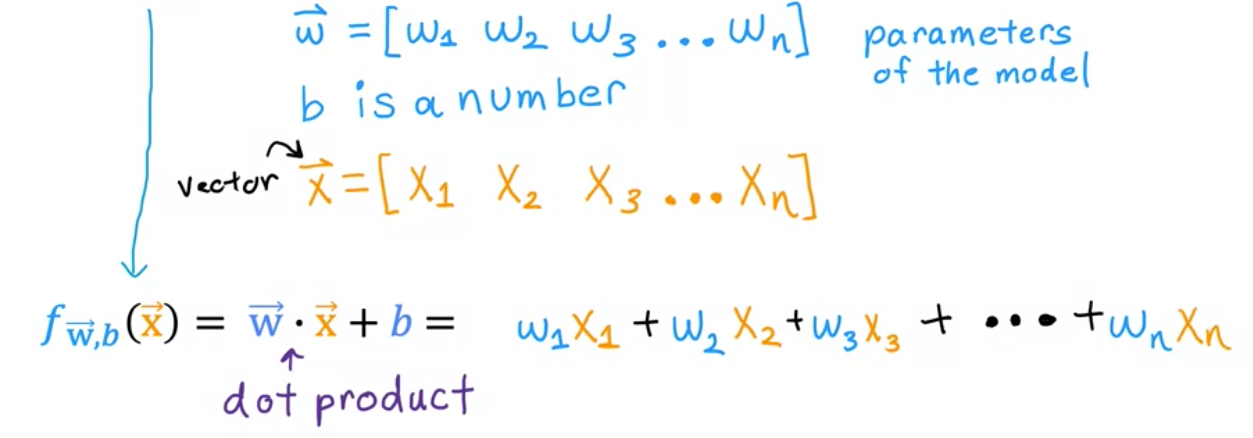 w⃗ = [w₁ w₂ w₃ ... wₙ] parameters
of the model
b is a number
vector x⃗ = [x₁ x₂ x₃ ... xₙ]
f_w⃗,b(x⃗) = w⃗ · x⃗ + b = w₁x₁ + w₂x₂ + w₃x₃ + ... + wₙxₙ
dot product